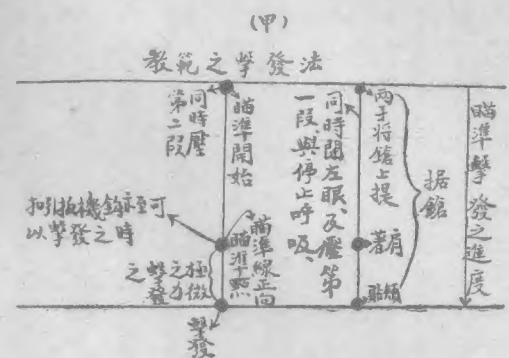 (甲)
教範之擊發法
瞄準擊發之進度
据鎗
兩手將鎗上提
着肩
貼頰
同時閉左眼、及壓第
一段、與停止呼吸、
瞄準開始
同時壓
第二段
瞄準線正向
瞄準點
扣引扳機鈎亦至可
以擊發之時
極微
之力
擊發
之
擊發